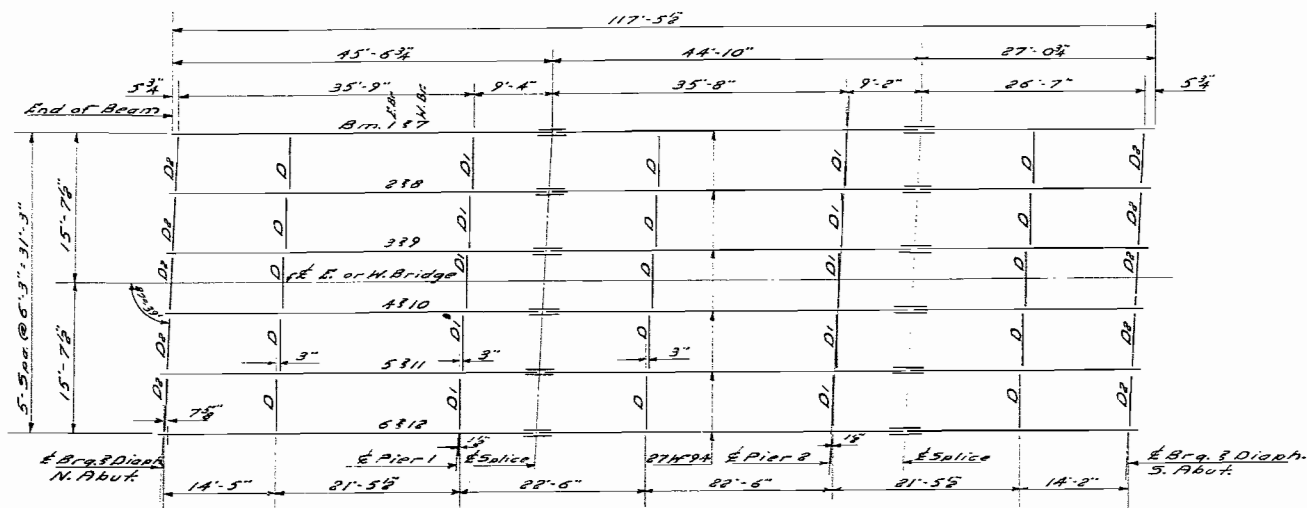 117'-5½"
45'-6¾" 44'-10" 27'-0¾"
5¾" 35'-9" 9'-4" 35'-8" 9'-2" 26'-7" 5¾"
End of Beam
E. Br.
W. Br.
Bm. 1 & 7
D2 D D1 D D1 D D2
2 & 8
D2 D D1 D D1 D D2
3 & 9
D2 D D1 D D1 D D2
℄ E. or W. Bridge
4 & 10
87°-39'
D2 D D1 D D1 D D2
3" 3" 3"
5 & 11
D2 D D1 D D1 D D2
7⅝"
6 & 12
5-Spa. @ 6'-3" = 31'-3"
15'-7½"
15'-7½"
1½" 1½"
℄ Brg. & Diaph.
N. Abut.
℄ Pier 1
℄ Splice
27 W 94
℄ Pier 2
℄ Splice
℄ Brg. & Diaph.
S. Abut.
14'-5" 21'-5½" 22'-6" 22'-6" 21'-5½" 14'-2"